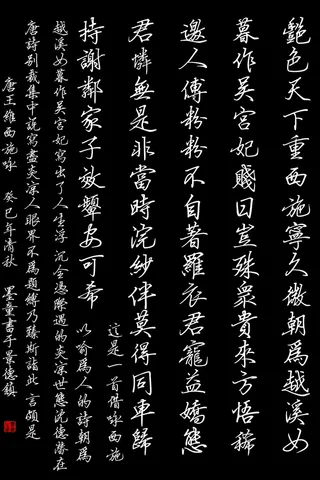 艷色天下重西施寧久微朝為越溪女
暮作吳宮妃賤日豈殊眾貴來方悟稀
邀人傅粉粉不自著羅衣君寵益嬌態
君憐無是非當時浣紗伴莫得同車歸
持謝鄰家子效顰安可希
這是一首借詠西施
以喻為人的詩朝為
越溪女暮作吳宮妃寫出了人生浮沉全憑際遇的炎涼世態沈德潛在
唐詩別裁集中說寫盡炎涼人眼界不為題縛乃臻斯詣此言頗是
唐王維西施詠 癸巳年清秋 墨童書于景德鎮